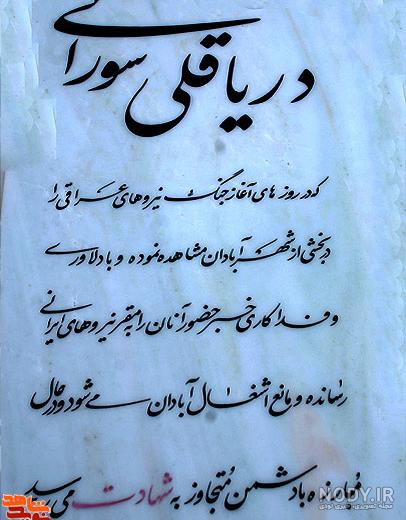 دریاقلی سورانی
که در روزهای آغاز جنگ نیروهای عراقی را
در بخشی از شهر آبادان مشاهده نموده و با دلاوری
و فداکاری خبر حضور آنان را به مقر نیروهای ایرانی
رسانده و مانع اشغال آبادان می‌شود و در حال
مبارزه با دشمن متجاوز به شهادت می‌رسد
NODY.IR